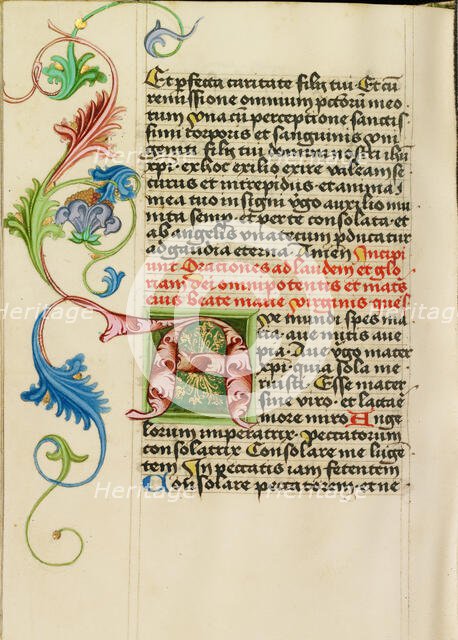 Et pfecta caritate filij tui Et cū
remissione omnium pctorum meo
rum Vna cū perceptione sanctis
simi corporis et sanguinis vni
geniti filij tui domini nostri ihū
xpi ex hoc exilio exire valeam se
curus et intrepidus et anima
mea tuo insigni vgo auxilio mu
nita semp et per te consolata et
ab angelis vīatetum ducatur
ad gaudia eterna Amen Incipi
unt Orationes ad laudem et glo
riam dei omnipotentis et matris
eius beate marie virginis que l
Ave mundi spes ma
ria aue mitis aue
pia Aue vgo mater
xpi quia sola me
ruisti Esse mater
sine viro et lactae
more miro Ange
lorum imperatrix Peccatorum
consolatrix Consolare me luge
tem In peccatis iam fetentem
Consolare peccatorem et ne
Heritage
Heritage
Heritage
Heritage
Heritage
Heritage